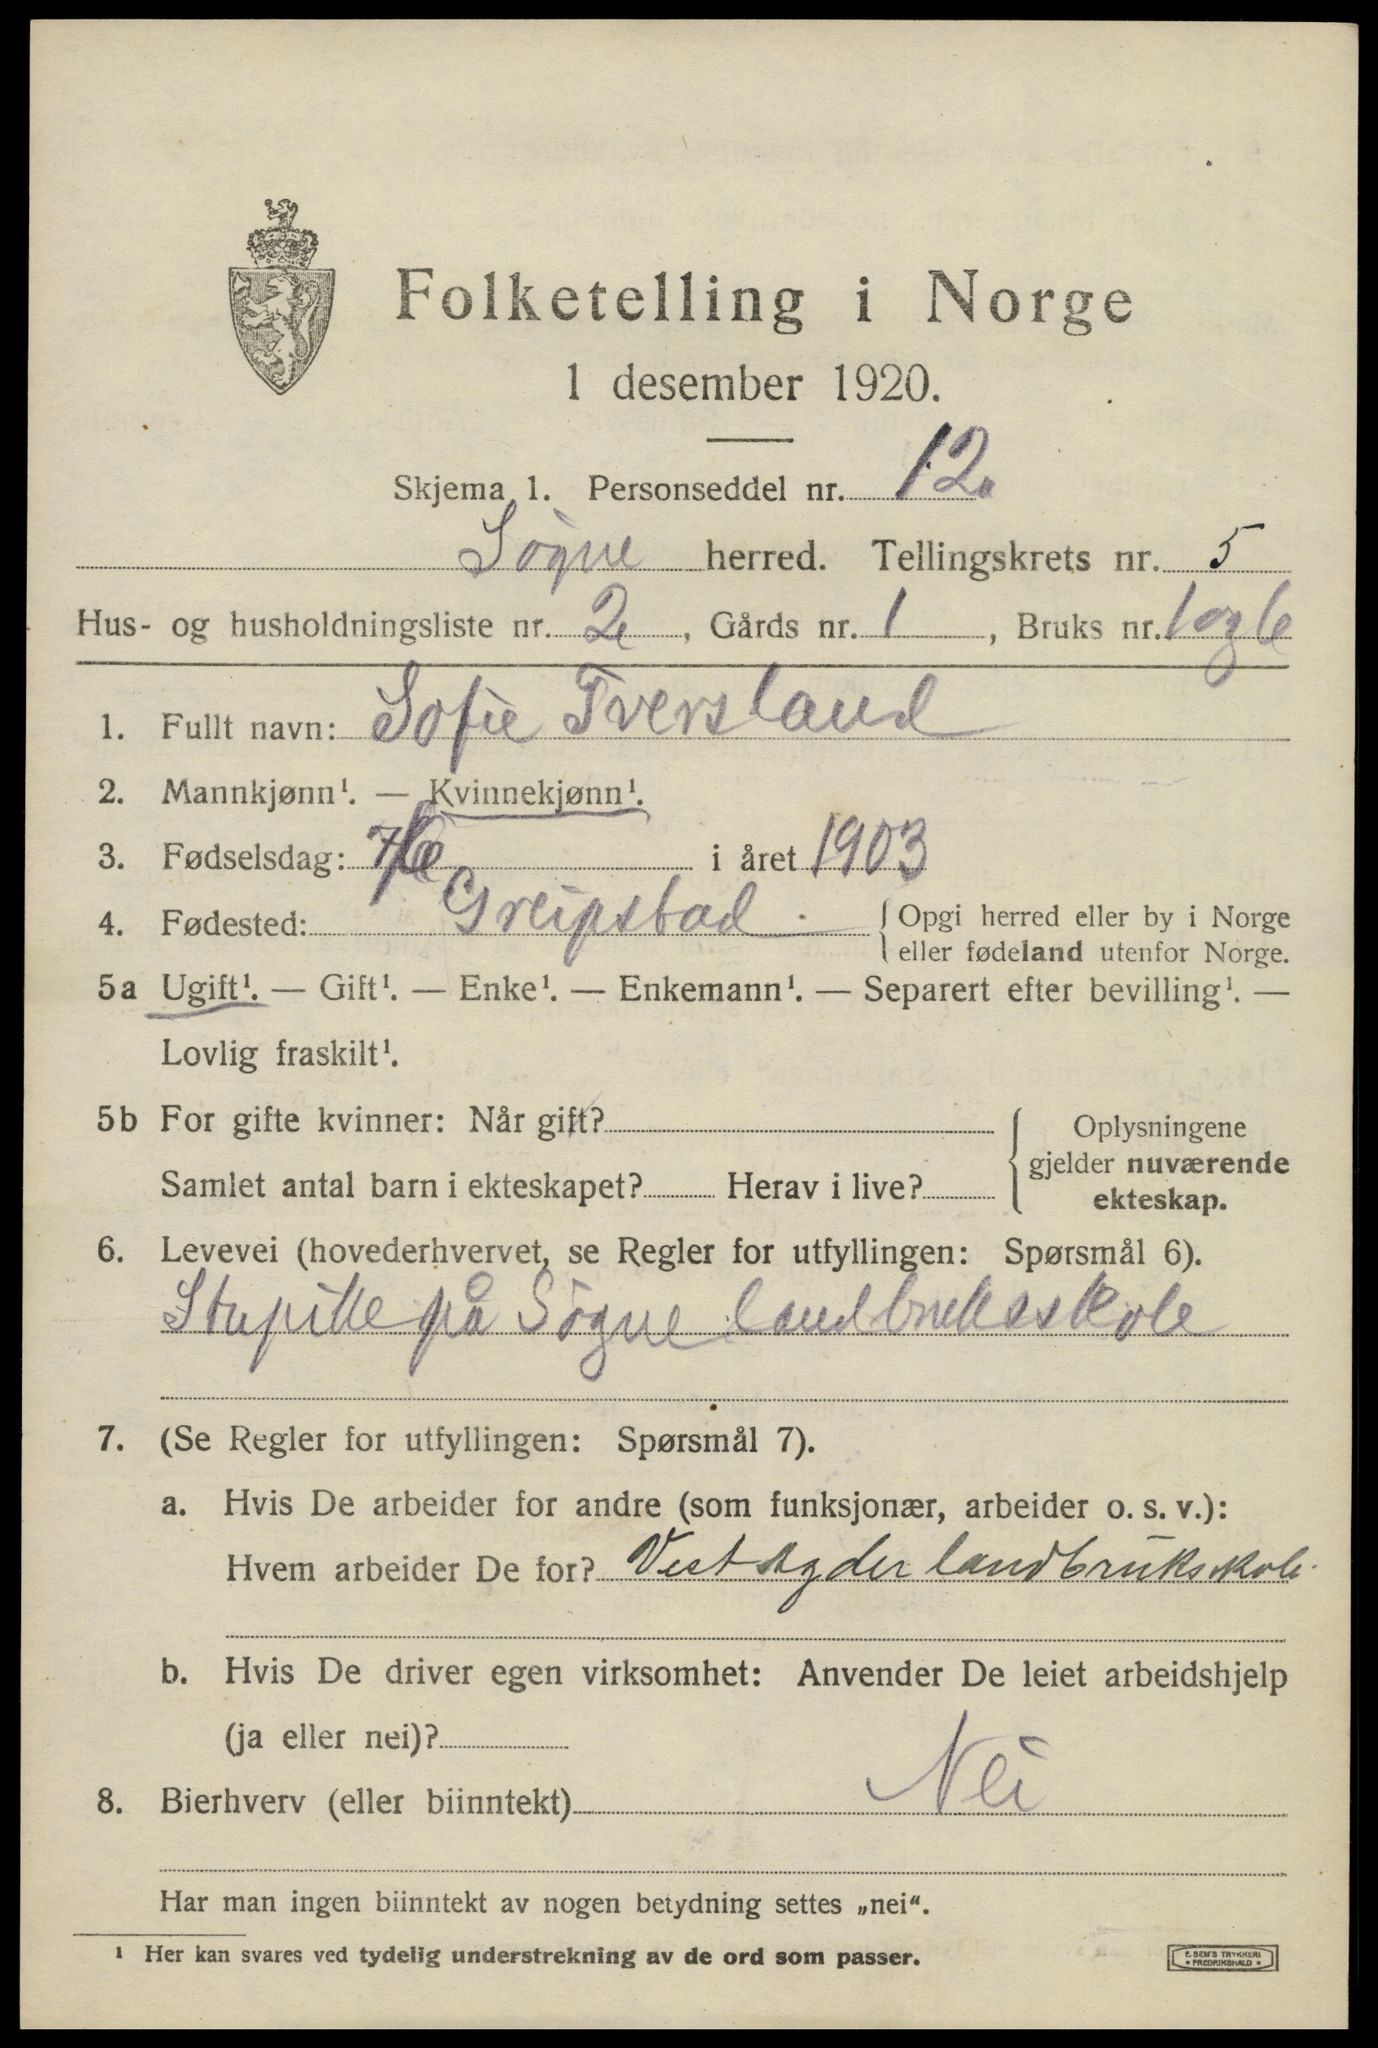 Folketelling i Norge
1 desember 1920.
Skjema 1. Personseddel nr. 12.
Søgne herred. Tellingskrets nr. 5
Hus- og husholdningsliste nr. 2, Gårds nr. 1, Bruks nr. 1 og 6
1. Fullt navn: Sofie Tversland
2. Mannkjønn¹. — Kvinnekjønn¹.
3. Fødselsdag: i året 1903
4. Fødested: Greipstad { Opgi herred eller by i Norge
eller fødeland utenfor Norge.
5a Ugift¹. — Gift¹. — Enke¹. — Enkemann¹. — Separert efter bevilling¹. —
Lovlig fraskilt¹.
5b For gifte kvinner: Når gift?
Samlet antal barn i ekteskapet? Herav i live?
Oplysningene
gjelder nuværende
ekteskap.
6. Levevei (hovederhvervet, se Regler for utfyllingen: Spørsmål 6).
Stupike på Søgne landbruksskole
7. (Se Regler for utfyllingen: Spørsmål 7).
a. Hvis De arbeider for andre (som funksjonær, arbeider o. s. v.):
Hvem arbeider De for? Vest Agder landbruksskole.
b. Hvis De driver egen virksomhet: Anvender De leiet arbeidshjelp
(ja eller nei)?
8. Bierhverv (eller biinntekt) Nei
Har man ingen biinntekt av nogen betydning settes „nei“.
¹ Her kan svares ved tydelig understrekning av de ord som passer.
E. SEM'S TRYKKERI
FREDRIKSHALD